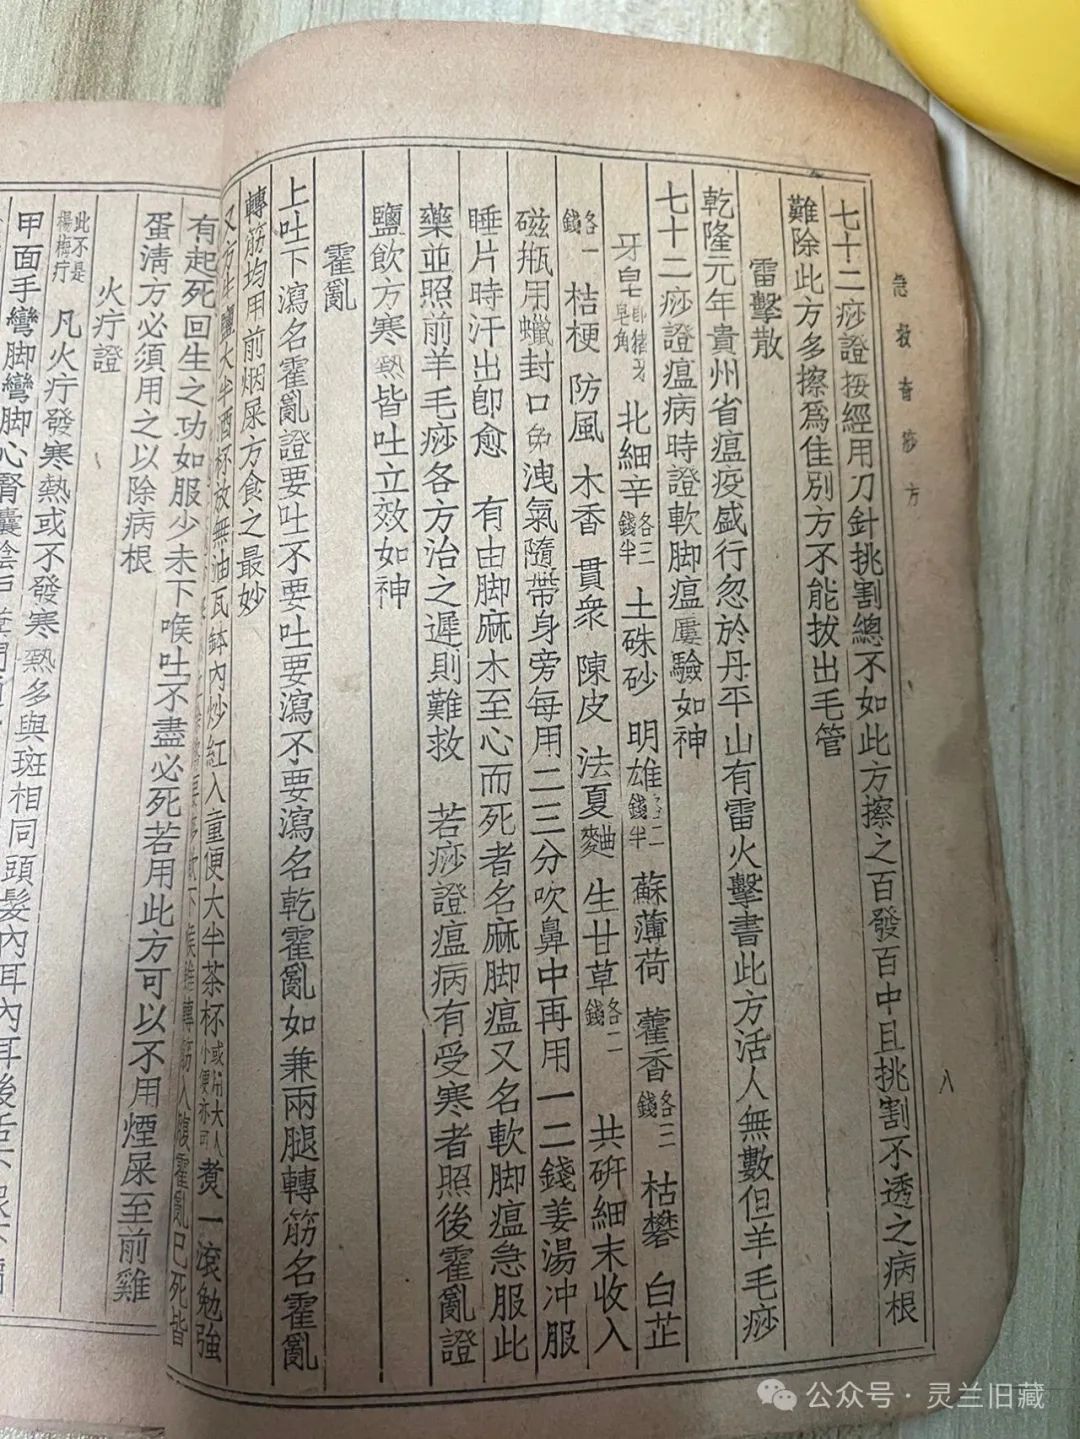 急救奇痧方
八
七十二痧證按經用刀針挑割總不如此方擦之百發百中且挑割不透之病根
難除此方多擦爲佳別方不能拔出毛管
雷擊散
乾隆元年貴州省瘟疫盛行忽於丹平山有雷火擊書此方活人無數但羊毛痧
七十二痧證瘟病時證軟脚瘟屢驗如神
牙皂卽豬牙皂角 北細辛各三錢半 土硃砂 明雄各二錢半 蘇薄荷 藿香各三錢 枯礬 白芷
各一錢 桔梗 防風 木香 貫衆 陳皮 法夏麯 生甘草各二錢 共研細末收入
磁瓶用蠟封口勿洩氣隨帶身旁每用二三分吹鼻中再用一二錢姜湯冲服
睡片時汗出卽愈 有由脚麻木至心而死者名麻脚瘟又名軟脚瘟急服此
藥並照前羊毛痧各方治之遲則難救 若痧證瘟病有受寒者照後霍亂證
鹽飲方寒熱皆吐立效如神
霍亂
上吐下瀉名霍亂證要吐不要吐要瀉不要瀉名乾霍亂如兼兩腿轉筋名霍亂
轉筋均用前烟屎方食之最妙
又方生鹽大半酒杯放無油瓦鉢內炒紅入童便大半茶杯或用大人小便亦可煑一滾勉強
下喉雖轉筋入腹霍亂已死皆
有起死回生之功如服少未下喉吐不盡必死若用此方可以不用煙屎至前雞
蛋清方必須用之以除病根
火疔證
此不是楊梅疔 凡火疔發寒熱或不發寒熱多與斑相同頭髮內耳內耳後舌下眼下
甲面手彎脚彎脚心腎囊陰戶